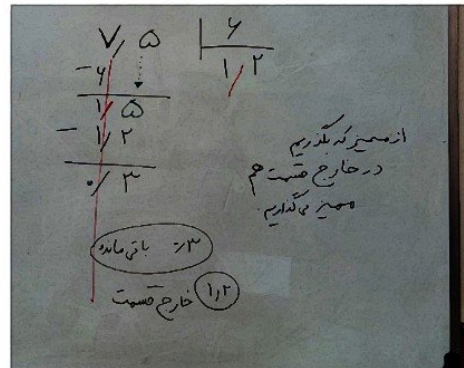 ۷/۵ | ۶
-۶ ۱/۲
۱/۵
-۱/۲
۰/۳
از ممیز که بگذریم
در خارج قسمت هم
ممیز می‌گذاریم.
۰/۳ باقی مانده
۱/۲ خارج قسمت